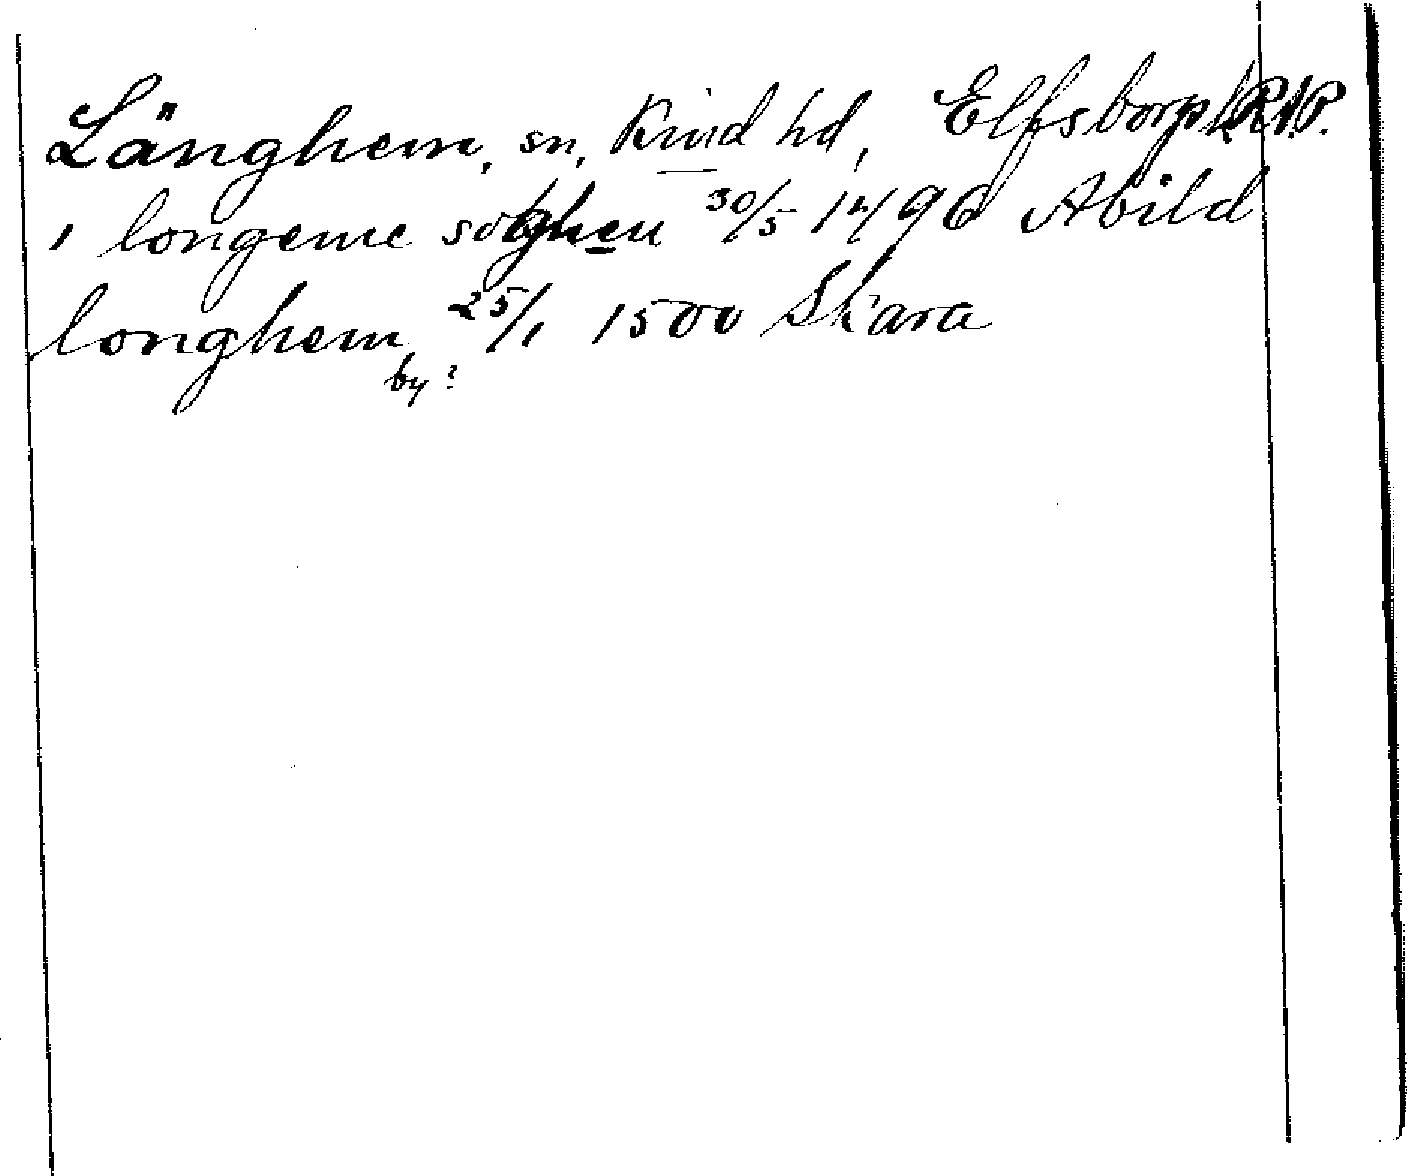 Länghem, sn, Kind hd, Elfsborgs l. R.A.P.
i longeme soghen 30/5 1496 Abild
longhem, 25/1 1500 Skara
by?